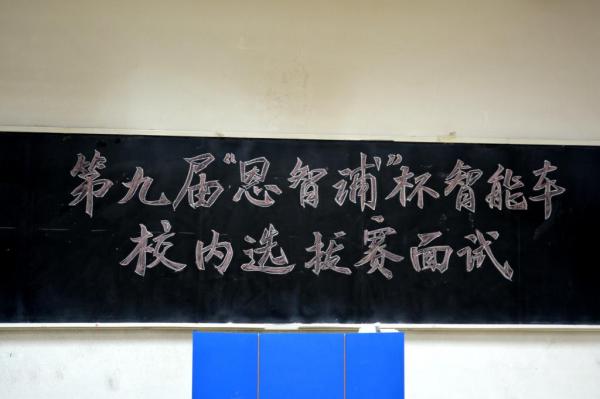 第九届“恩智浦”杯智能车
校内选拔赛面试